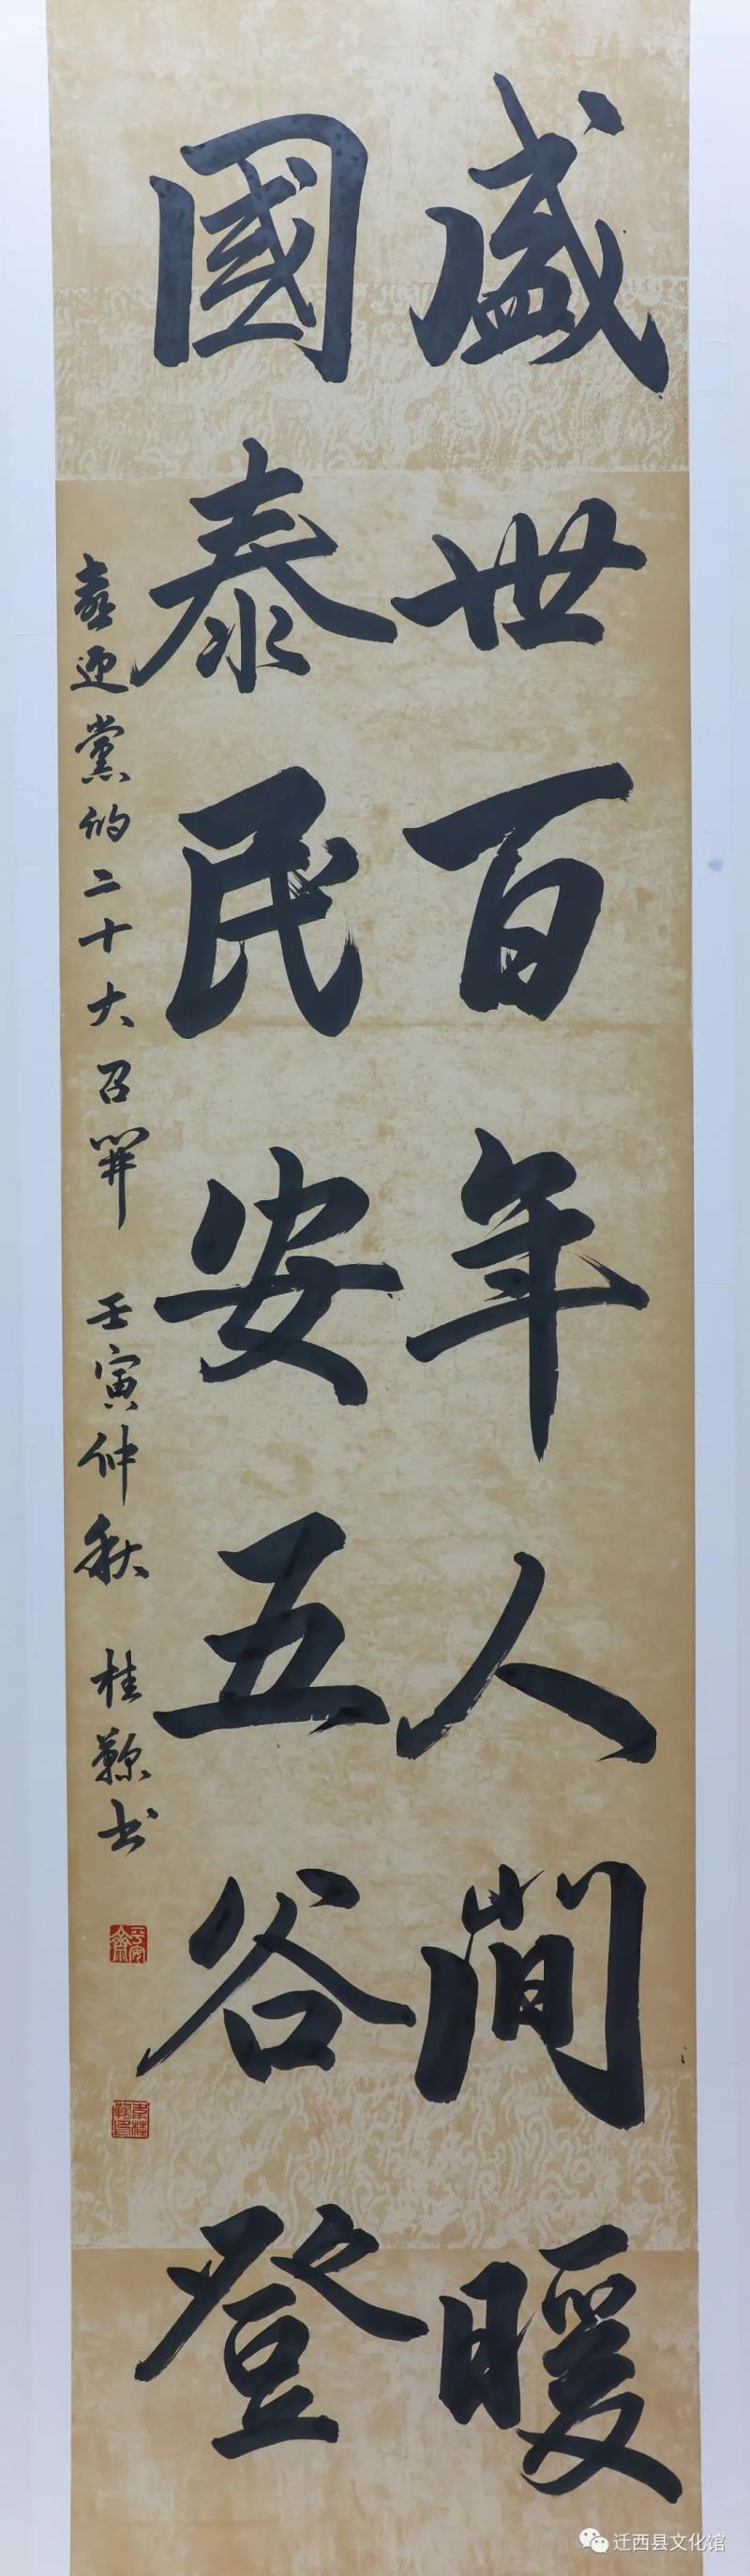 盛世百年人間暖
國泰民安五谷登
喜迎黨的二十大召開 壬寅仲秋 桂 书
平安齋
迁西县文化馆